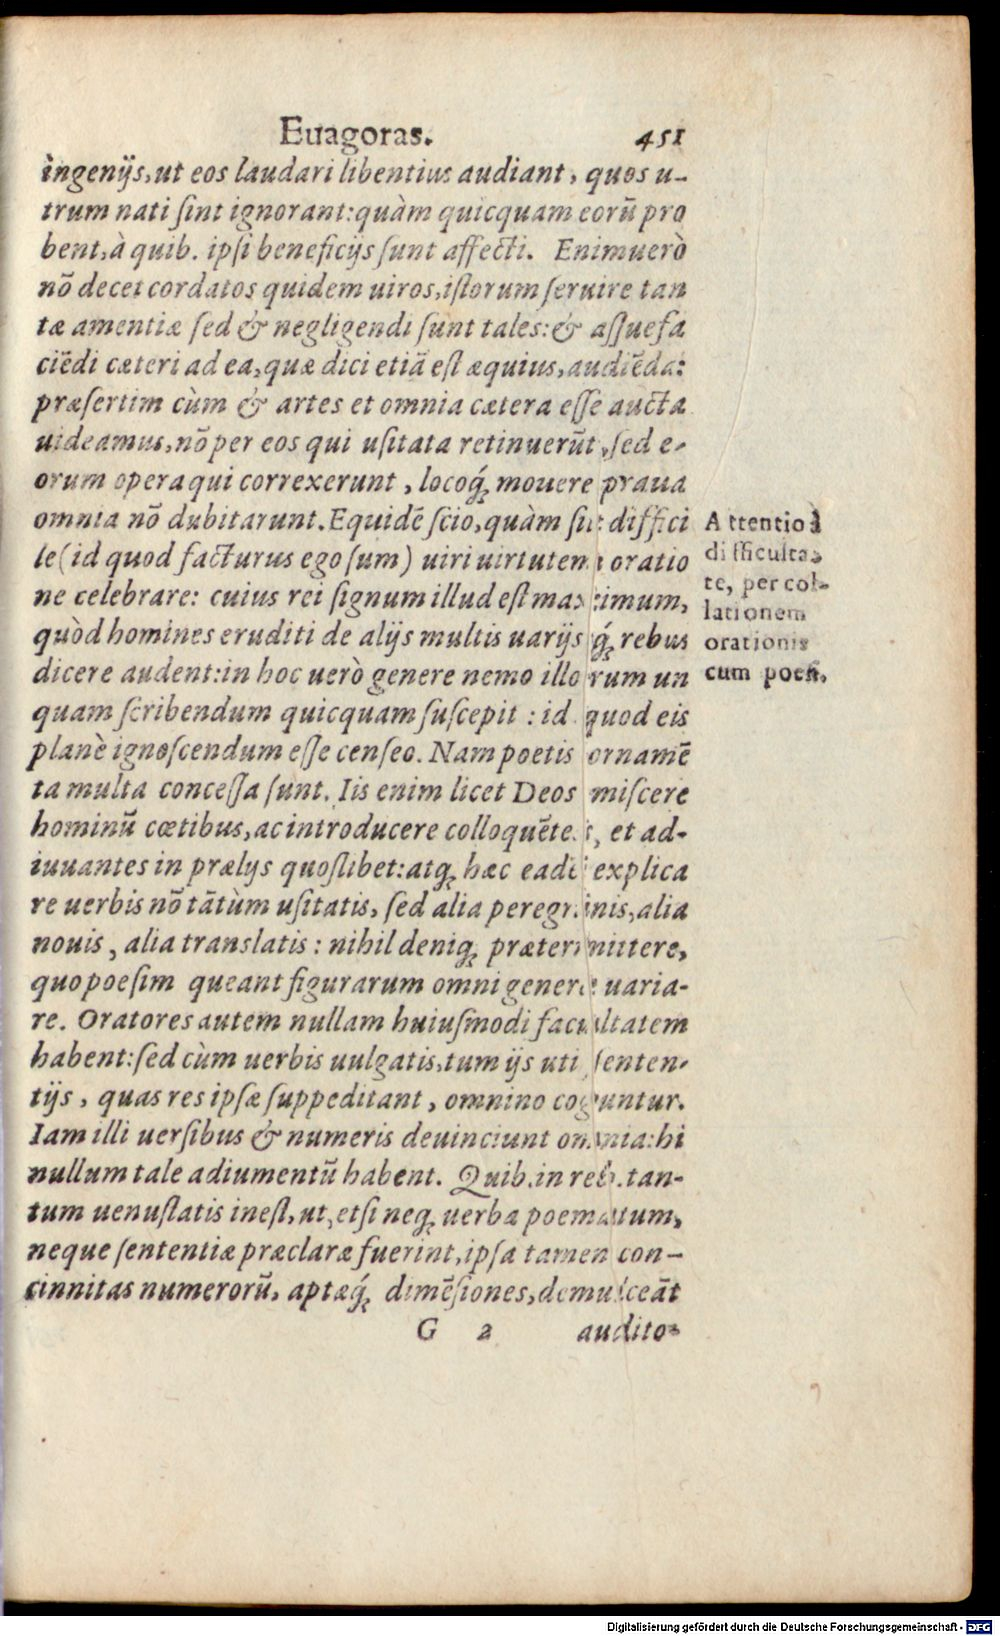 Euagoras. 451
ingenijs, ut eos laudari libentius audiant, quos u-
trum nati ſint ignorant: quàm quicquam eorũ pro
bent, à quib. ipſi beneficijs ſunt affecti. Enimuerò
nõ decet cordatos quidem uiros, iſtorum ſeruire tan
tæ amentiæ ſed & negligendi ſunt tales: & aſſuefa
ciẽdi cæteri ad ea, quæ dici etiã eſt æquius, audiẽda:
præſertim cùm & artes et omnia cætera eſſe aucta
uideamus, nõ per eos qui uſitata retinuerũt, ſed e-
orum opera qui correxerunt, locoq́; mouere praua
omnia nõ dubitarunt. Equidẽ ſcio, quàm ſit diffici
le (id quod facturus ego ſum) uiri uirtutem oratio
ne celebrare: cuius rei ſignum illud eſt maximum,
quòd homines eruditi de alijs multis uarijsq́; rebus
dicere audent: in hoc uerò genere nemo illorum un
quam ſcribendum quicquam ſuſcepit: id quod eis
planè ignoſcendum eſſe cenſeo. Nam poetis ornamẽ
ta multa conceſſa ſunt. Iis enim licet Deos miſcere
hominũ cœtibus, ac introducere colloquẽtes, et ad-
iuuantes in prælijs quoſlibet: atq; hæc eadẽ explica
re uerbis nõ tãtùm uſitatis, ſed alia peregrinis, alia
nouis, alia translatis: nihil deniq; prætermittere,
quo poeſim queant figurarum omni genere uaria-
re. Oratores autem nullam huiuſmodi facultatem
habent: ſed cùm uerbis uulgatis, tum ijs uti ſenten-
tijs, quas res ipſæ ſuppeditant, omnino coguntur.
Iam illi uerſibus & numeris deuinciunt omnia: hi
nullum tale adiumentũ habent. Quib. in reb. tan-
tum uenuſtatis ineſt, ut, etſi neq; uerba poematum,
neque ſententiæ præclaræ fuerint, ipſa tamen con-
cinnitas numerorũ, aptæq́; dimẽſiones, demulceãt
G 2 audito-
Attentio à
difficulta-
te, per col-
lationem
orationis
cum poeſi.
Digitalisierung gefördert durch die Deutsche Forschungsgemeinschaft - DFG